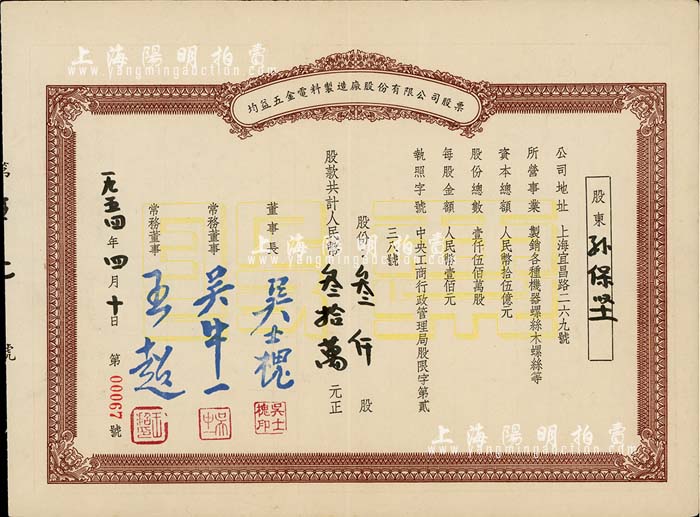 上海陽明拍賣
www.yangmingauction.com
均益五金電料製造廠股份有限公司股票
股東 孙保堃
公司地址 上海宜昌路二六九號
所營事業 製銷各種機器螺絲木螺絲等
資本總額 人民幣拾伍億元
股份總數 壹仟伍佰萬股
每股金額 人民幣壹佰元
執照字號 中央工商行政管理局股限字第貳
三八號
股份 叁仟 股
股款共計人民幣 叁拾萬 元正
董事長 吴士槐
吳士槐印
常務董事 吴中一
常務董事 王超
一九五四年四月十日
第00067號
第
號
上海陽明拍賣
www.yangmingauction.com
上海陽明拍賣
www.yangmingauction.com